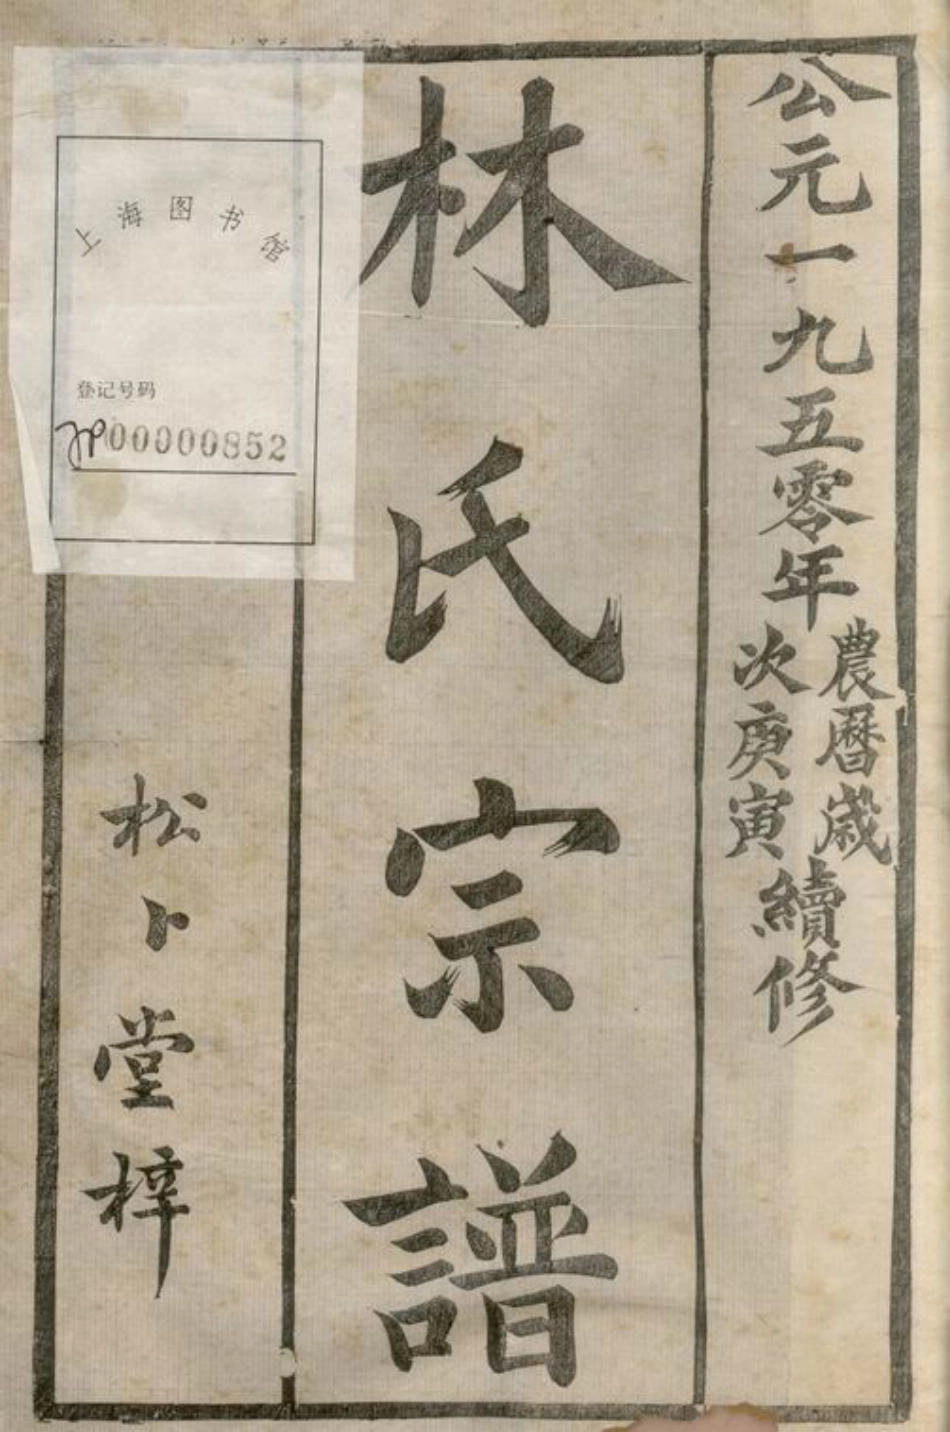 公元一九五零年
農曆歲
次庚寅
續修
林氏宗譜
松卜堂梓
上海图书馆
登记号码
00000852